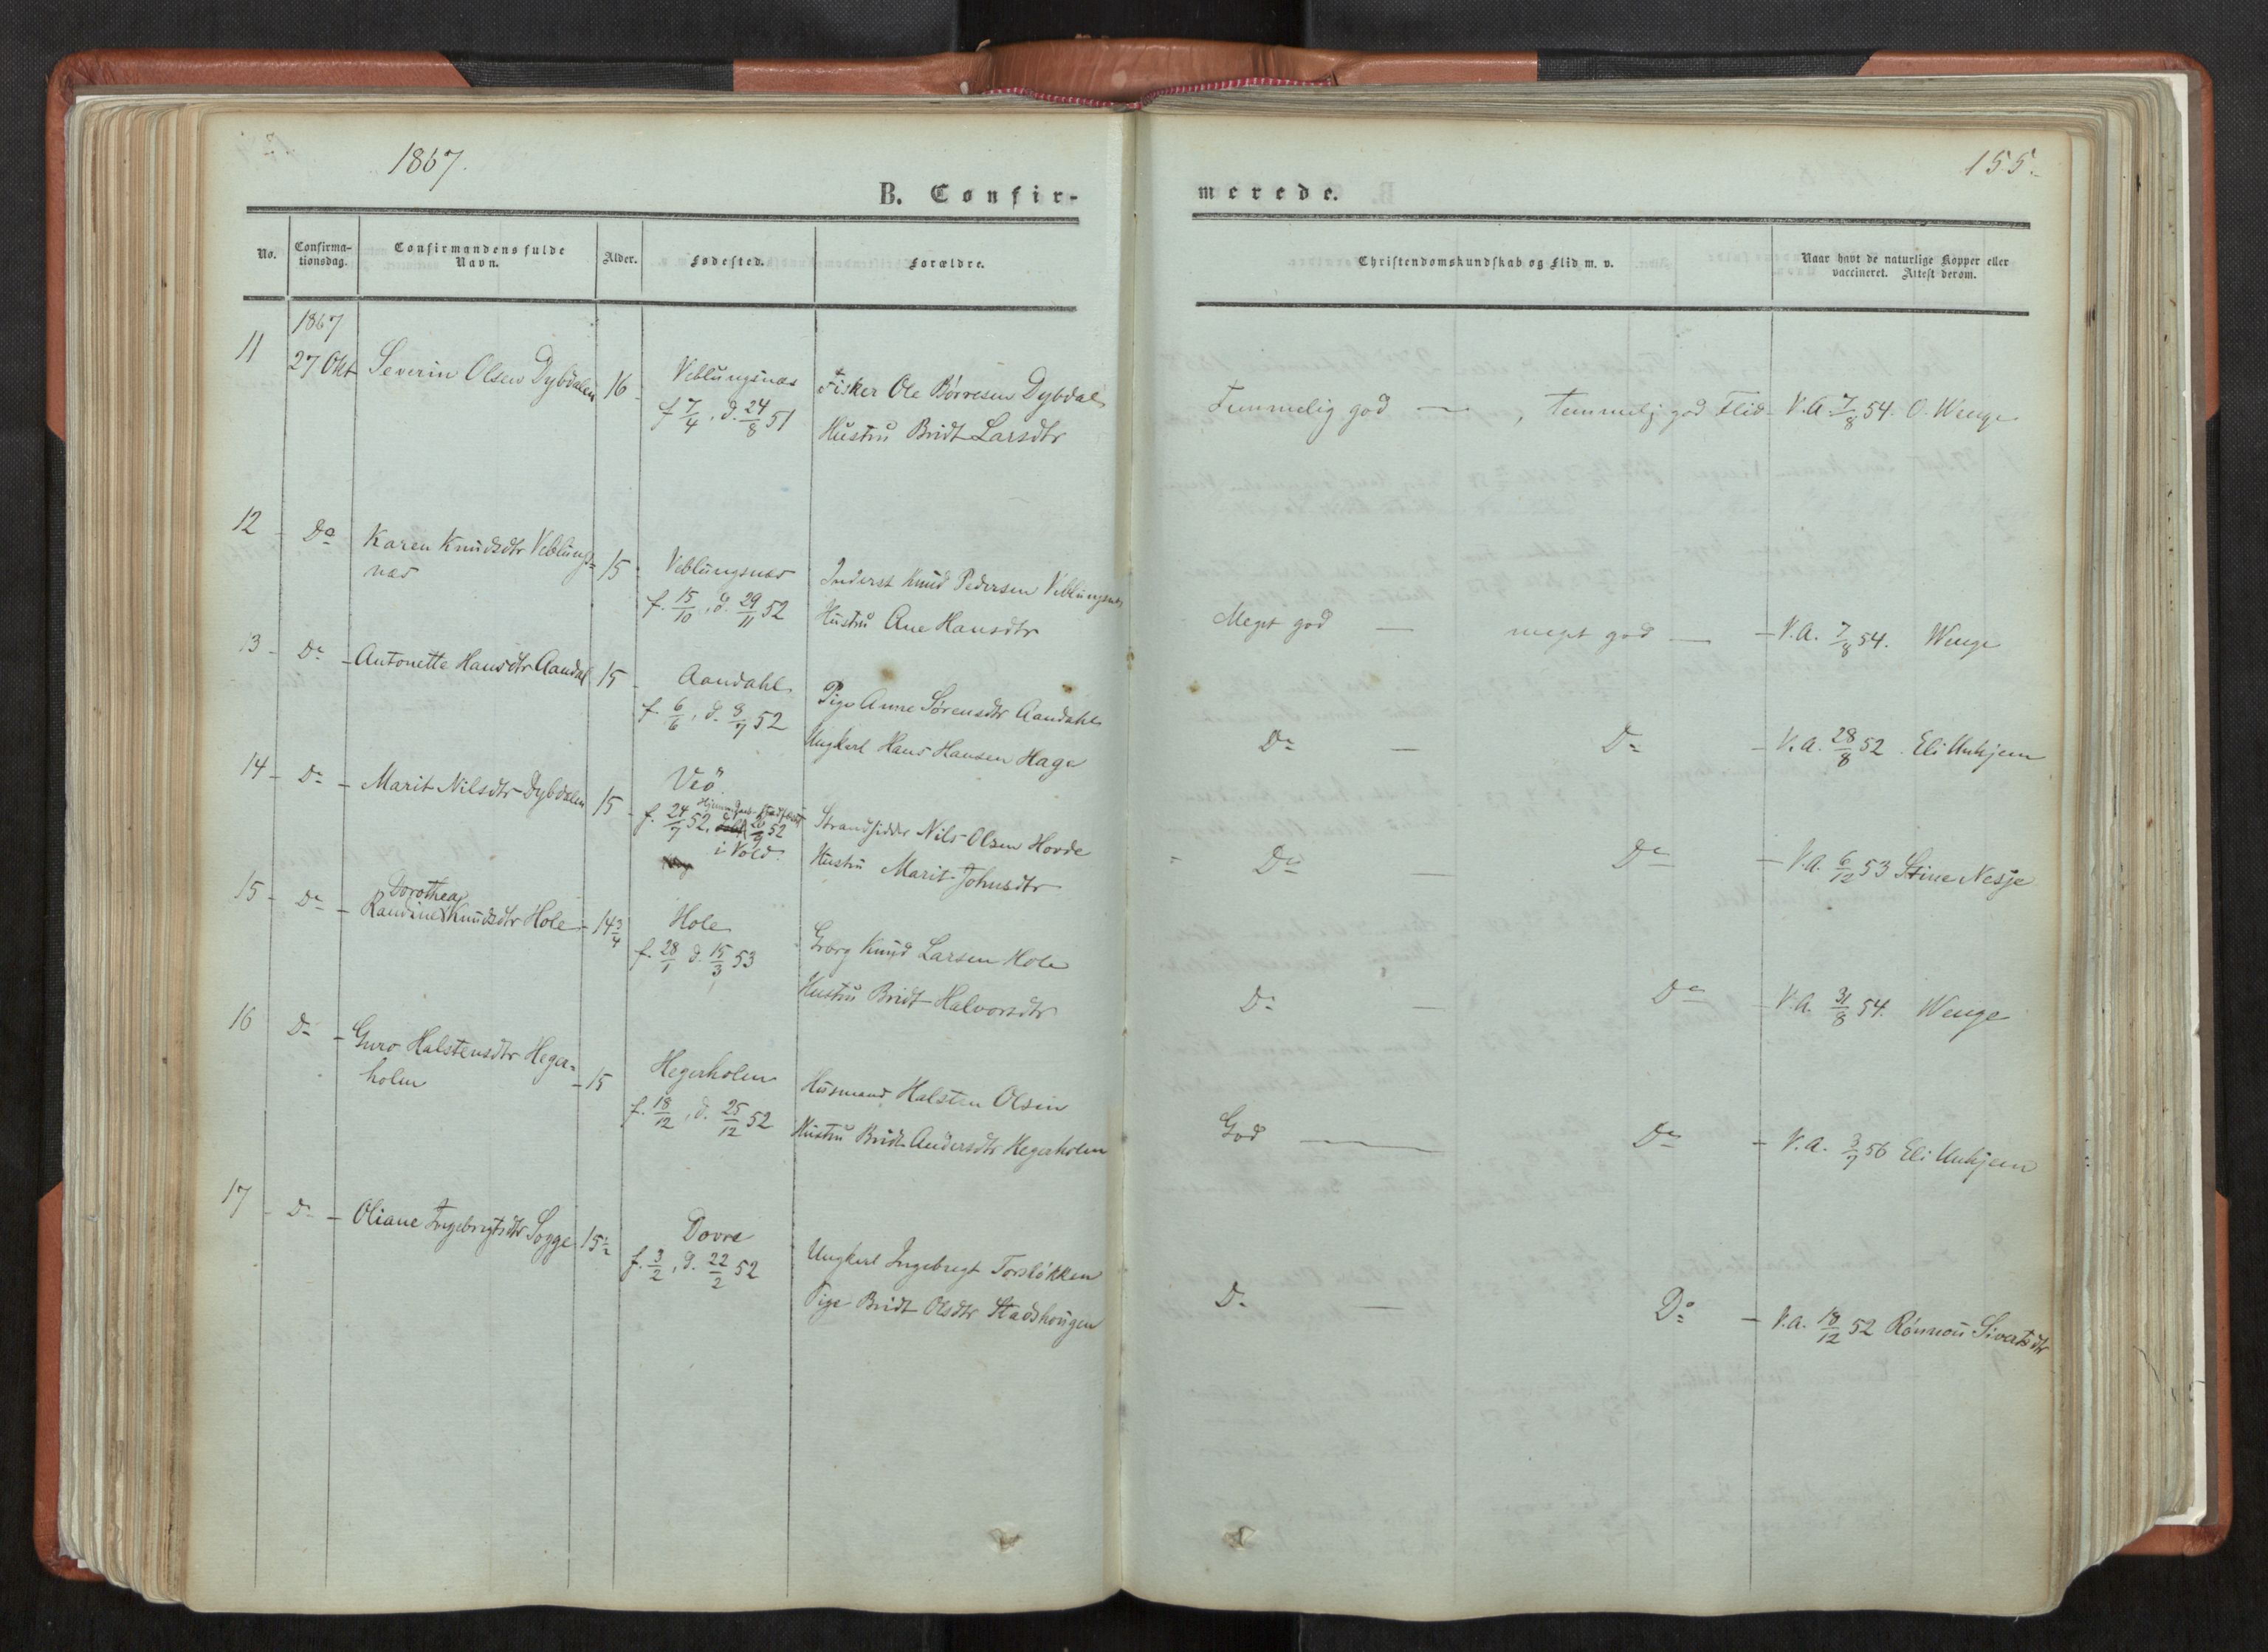 1867.
155.
B. Confir-
merede.
No.
Confirma-
tionsdag.
Confirmandens fulde
Navn.
Alder.
Fødested.
Forældre.
Christendomskundskab og Flid m. v.
Naar havt de naturlige Kopper eller
vaccineret. Attest derom.
1867
11 27 Okt Severin Olsen Dybdalen 16 Veblungsnæs Fisker Ole Børresen Dybdal
f 7/4, d. 24/8 51 Hustru Bridt Larsdtr
Temmelig god — , temmelig god Flid - V.A. 7/8 54. O. Wenge
12 - Do Karen Knudsdtr Veblungs= 15 Veblungsnæs Inderst Knud Pedersen Veblungsnæs
næs f. 15/10, d. 29/11 52 Hustru Ane Hansdtr
Meget god — meget god — - V.A. 7/8 54. Wenge
13 - Do - Antonette Hansdtr Aandal 15 Aandahl Pige Anne Sørensdtr Aandahl
f. 6/6, d. 3/7 52 Ungkarl Hans Hansen Hage
Do — Do - V.A. 28/8 52. Eli Unhjem
14 - Do - Marit Nilsdtr Dybdalen 15 Veö Strandsidder Nils Olsen Hovde
Hjemmedøbt
f. 24/7 52, 52
i Vold. Hustru Marit Johnsdtr
Do — Do - V.A. 6/12 53 Stine Nesje
Dorothea
15 - Do - Randine Knudsdtr Hole - 14 3/4 Hole Gbrg Knud Larsen Hole
f. 28/1 d. 15/3 53 Hustru Bridt Halvorsdtr
Do — Do - V.A. 31/8 54. Wenge
16 Do - Guro Halstensdtr Heger= - 15 Hegerholm Husmand Halsten Olsen
holm f. 18/12, d. 25/12 52 Hustru Bridt Andersdtr Hegerholm
God — Do - V.A. 3/7 56 Eli Unhjem
17 - Do - Oliane Ingebrigtsdtr Sogge 15 1/2 Dovre Ungkarl Ingebrigt Torsløkken
f. 3/2, d. 22/2 52 Pige Bridt Olsdtr Stadshougen
Do — Do - V.A. 18/12 52 Rönnou Sivertsdtr